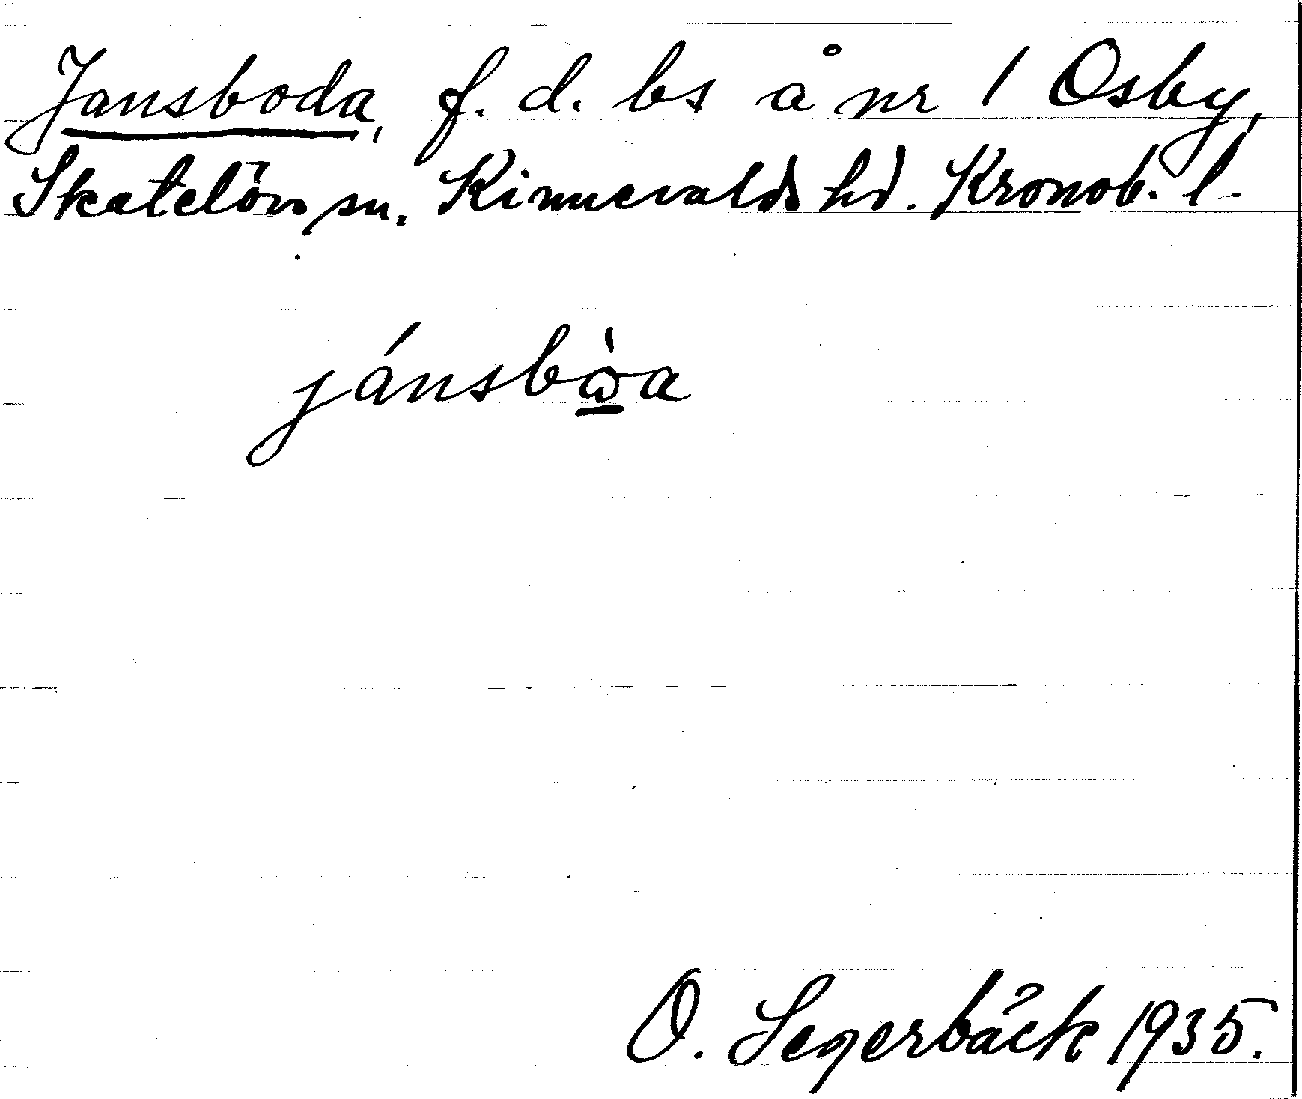 Jansboda, f. d. bs å nr 1 Osby,
Skatelövs sn. Kinnevalds hd. Kronob. l.
jánsbὼ̱a
O. Segerbäck 1935.